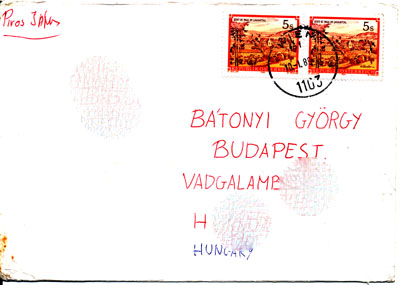 Piros János
5s 5s
1103
BÁTONYI GYÖRGY
BUDAPEST.
VADGALAMB
H
HUNGARY